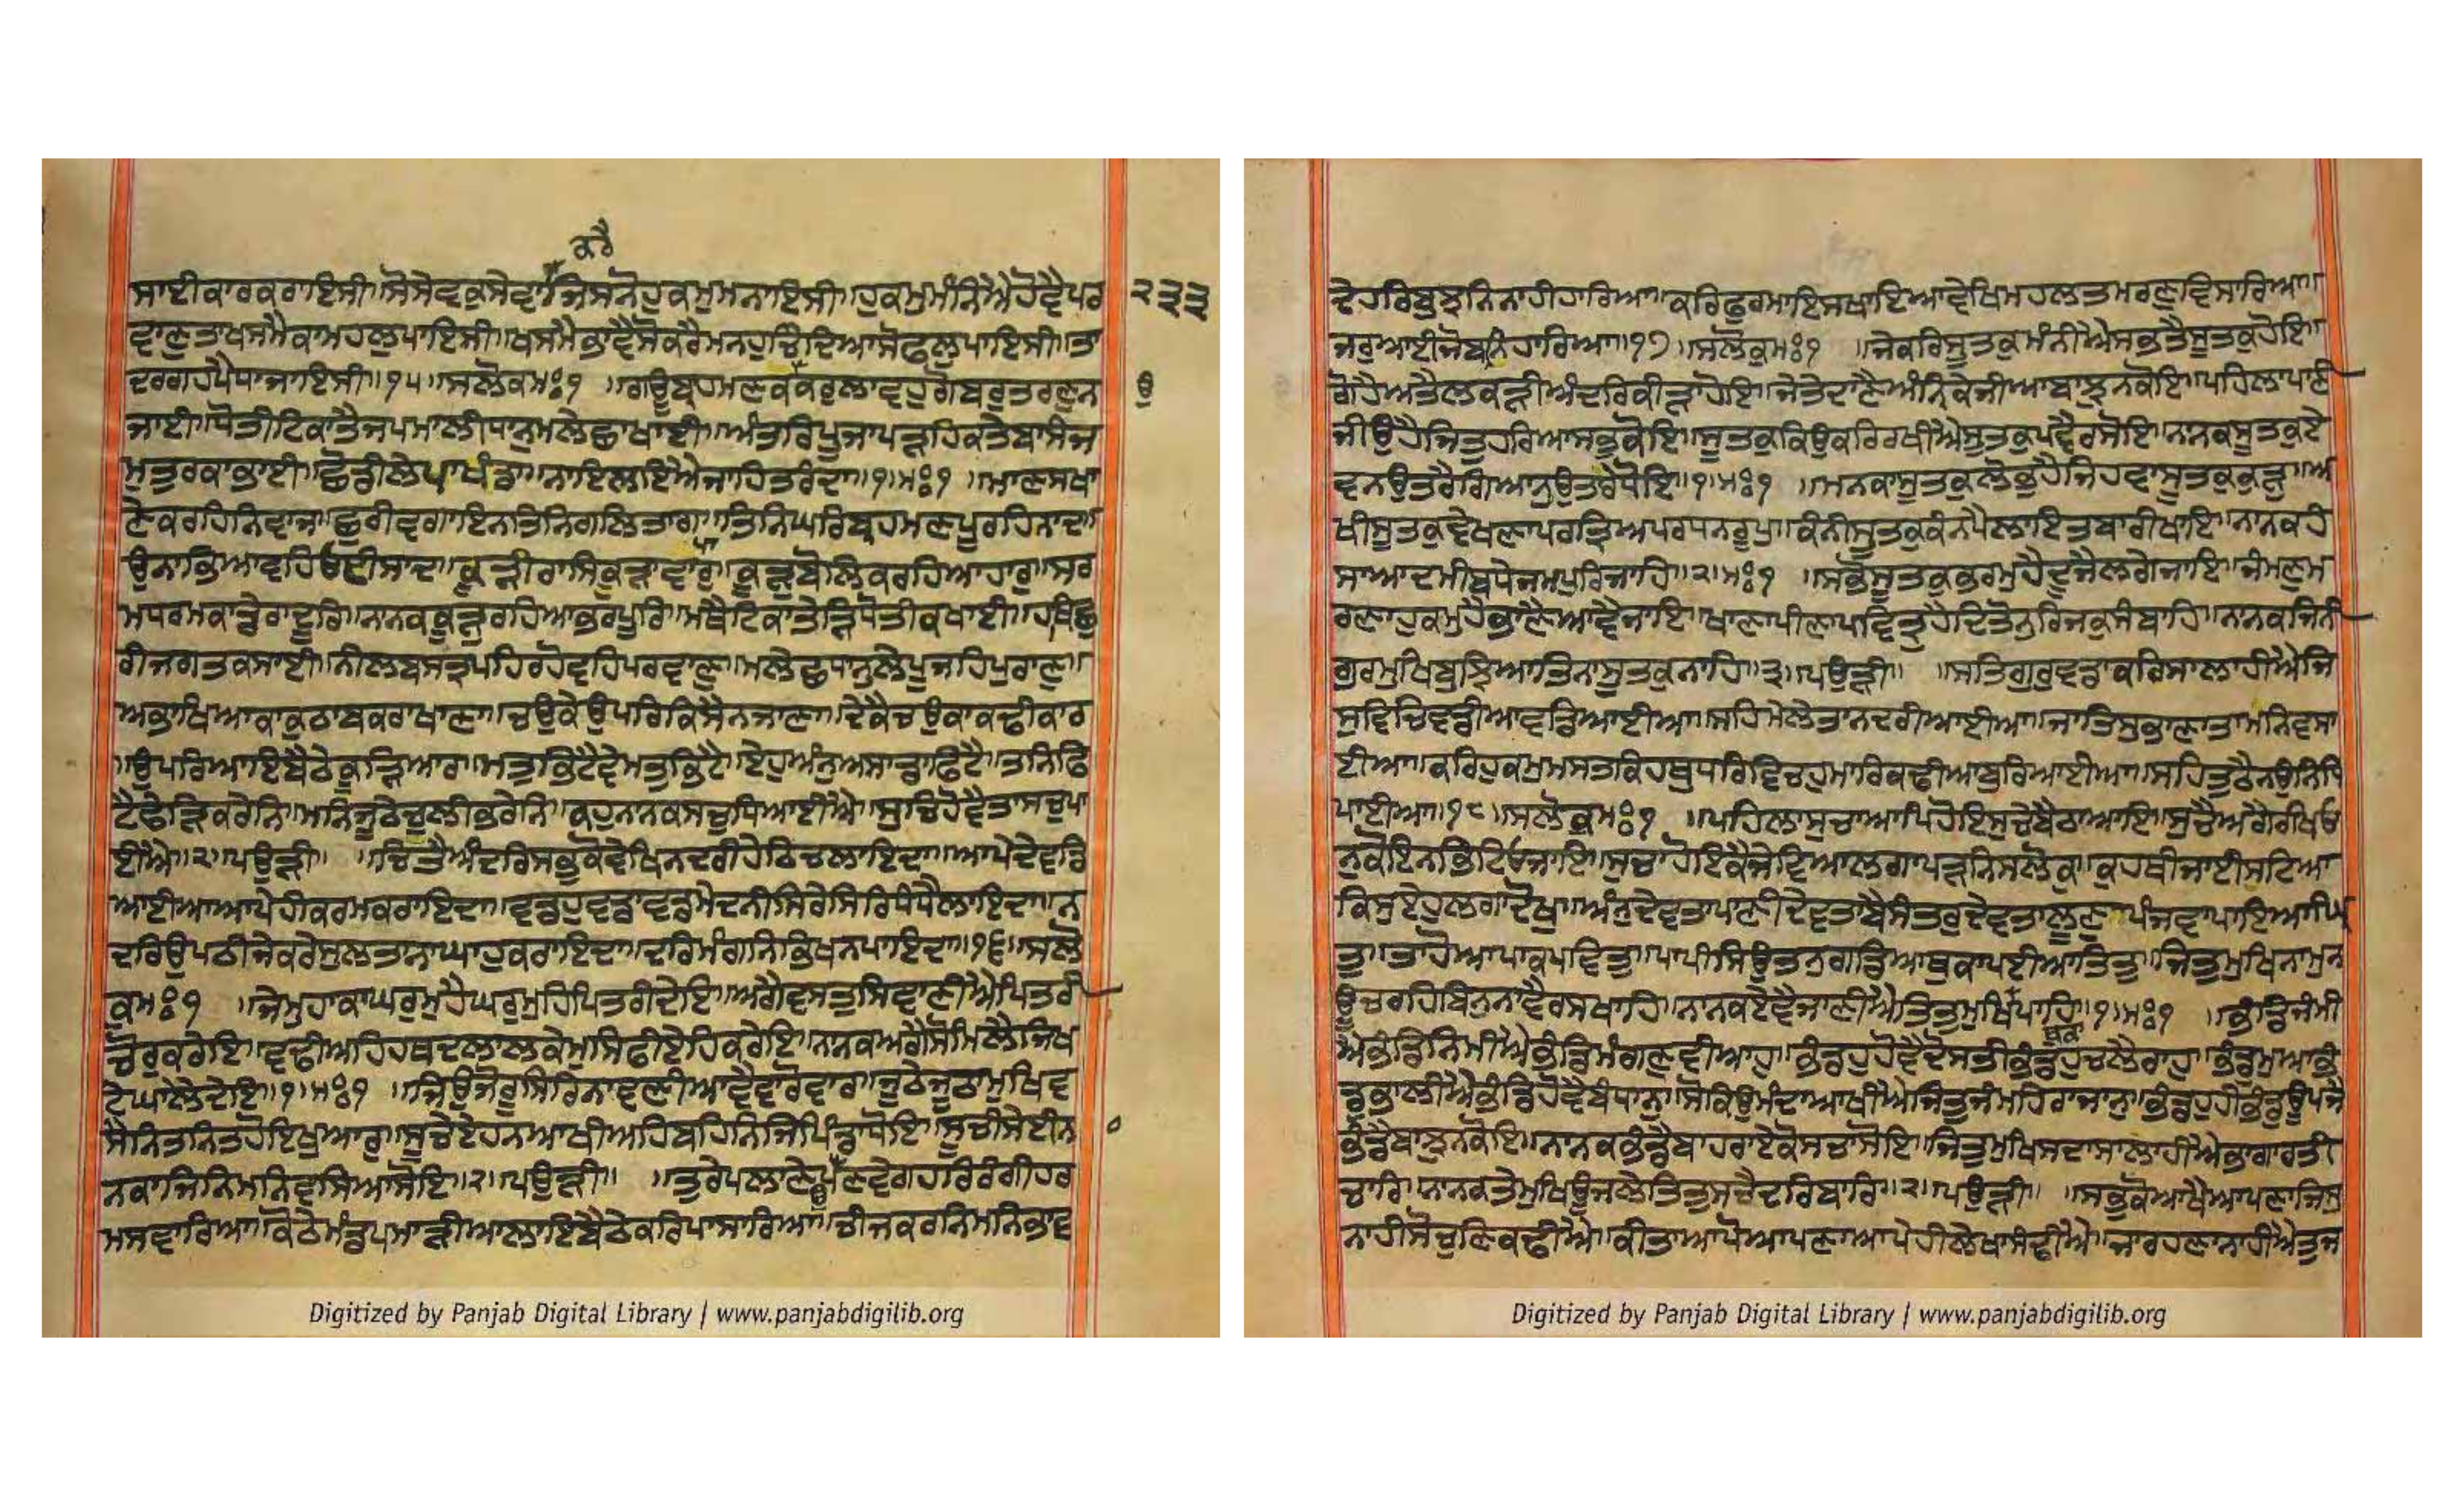 ਕਰੈ
ਸਾਈਕਾਰਕਰਾਇਸੀ॥ਸੋਸੇਵਕੁਸੇਵਾ॥ਜਿਸਨੋਹੁਕਮੁਮਨਾਇਸੀ॥ਹੁਕਮੁਮੰਨਿਐਹੋਵੈਪਰ ੨੩੩
ਵਾਣੁਤਾਖਸਮੈਕਾਮਹਲੁਪਾਇਸੀ॥ਖਸਮੈਭਾਵੈਸੋਕਰੈਮਨਹੁਚਿੰਦਿਆਸੋਫਲੁਪਾਇਸੀ॥ਤਾ
ਦਰਗਹਪੈਧਾਜਾਇਸੀ॥੧੫॥ਸਲੋਕਮਃ੧ ॥ਗਊਬ੍ਰਹਮਣਕਕਰੁਲਾਵਹੁਗੋਬਰੁਤਰਣੁਨ
ਜਾਈ॥ਧੋਤੀਟਿਕਾਤੈਜਪਮਾਲੀਧਾਨੁਮਲੇਛਾਖਾਈ॥ਅੰਤਰਿਪੂਜਾਪੜਹਿਕਤੇਬਾਸੰਜ
ਮੁਤੁਰਕਾਭਾਈ॥ਛੋਡੀਲੇਪਾਖੰਡਾ॥ਨਾਇਲਇਐਜਾਹਿਤਰੰਦਾ॥੧॥ਮਃ੧ ॥ਮਾਣਸਖਾ
ਣੇਕਰਹਿਨਿਵਾਜ॥ਛੁਰੀਵਗਾਇਨਤਿਨਿਗਲਿਤਾਗ॥ਤਿਨਿਘਰਿਬ੍ਰਹਮਣਪੂਰਹਿਨਾਦ॥
ਉਨਾਭਿਆਵਹਿਓਈਸਾਦ॥ਕੂੜੀਰਾਸਿਕੂੜਾਵਾਪਾਰੁ॥ਕੂੜੁਬੋਲਿਕਰਹਿਆਹਾਰੁ॥ਸਰ
ਮਧਰਮਕਾਡੇਰਾਦੂਰਿ॥ਨਾਨਕਕੂੜੁਰਹਿਆਭਰਪੂਰਿ॥ਮਥੈਟਿਕਾਤੇੜਿਧੋਤੀਕਖਾਈ॥ਹਥਿਛੁ
ਰੀਜਗਤਕਸਾਈ॥ਨੀਲਬਸਤ੍ਰਪਹਿਰਹੋਵਹਿਪਰਵਾਣੁ॥ਮਲੇਛਧਾਨੁਲੇਪੂਜਹਿਪੁਰਾਣੁ॥
ਅਭਾਖਿਆਕਾਕੁਠਾਬਕਰਾਖਾਣਾ॥ਚਉਕੇਉਪਰਿਕਿਸੈਨਜਾਣਾ॥ਦੇਕੈਚਉਕਾਕਢੀਕਾਰ
॥ਉਪਰਿਆਇਬੈਠੇਕੂੜਿਆਰ॥ਮਤੁਭਿਟੈਵੇਮਤੁਭਿਟੈ॥ਇਹੁਅੰਨੁਅਸਾਡਾਫਿਟੈ॥ਤਨਿਫਿ
ਟੈਫੇੜਿਕਰੇਨਿ॥ਮਨਿਜੂਠੈਚੁਲੀਭਰੇਨਿ॥ਕਹੁਨਾਨਕਸਚੁਧਿਆਈਐ॥ਸੁਚਿਹੋਵੈਤਾਸਚੁਪਾ
ਈਐ॥੨॥ਪਉੜੀ॥ ॥ਚਿਤੈਅੰਦਰਿਸਭੁਕੋਵੇਖਿਨਦਰੀਹੇਠਿਚਲਾਇਦਾ॥ਆਪੇਦੇਵਡਿ
ਆਈਆਆਪੇਹੀਕਰਮਕਰਾਇਦਾ॥ਵਡਹੁਵਡਾਵਡਮੇਦਨੀਸਿਰੇਸਿਰਿਧੰਧੈਲਾਇਦਾ॥ਨ
ਦਰਿਉਪਠੀਜੇਕਰੇਸੁਲਤਾਨਾਘਾਹੁਕਰਾਇਦਾ॥ਦਰਿਮੰਗਨਿਭਿਖਨਪਾਇਦਾ॥੧੬॥ਸਲੋ
ਕੁਮਃ੧ ॥ਜੇਮੁਹਾਕਾਘਰੁਮੁਹੈਘਰੁਮੁਹਿਪਿਤਰੀਦੇਇ॥ਅਗੈਵਸਤੁਸਿਞਾਣੀਐਪਿਤਰੀ
ਚੋਰਕਰੇਇ॥ਵਢੀਅਹਿਹਥਦਲਾਲਕੇਮੁਸਿਫੀਏਹਿਕਰੇਇ॥ਨਾਨਕਅਗੈਸੋਮਿਲੈਜਿਖ
ਟੇਘਾਲੇਦੇਇ॥੧॥ਮਃ੧ ॥ਜਿਉਜੋਰੂਸਿਰਿਨਾਵਣੀਆਵੈਵਾਰੋਵਾਰ॥ਜੂਠੇਜੂਠਾਮੁਖਿਵ
ਸੈਨਿਤਨਿਤਹੋਇਖੁਆਰੁ॥ਸੂਚੈਏਹਨਆਖੀਅਹਿਬਹਨਿਜਿਪਿੰਡਾਧੋਇ॥ਸੂਚੀਸੇਈਨ
ਨਕਾਜਿਨਿਮਨਿਵਸਿਆਸੋਇ॥੨॥ਪਉੜੀ॥ ॥ਤੁਰੇਪਲਾਣੇਪਉਣਵੇਗਹਰਿਰੰਗੀਹਰ
ਮਸਵਾਰਿਆ॥ਕੋਠੇਮੰਡਪਮਾੜੀਆਲਾਇਬੈਠੇਕਰਿਪਾਸਾਰਿਆ॥ਚੀਜਕਰਨਿਮਨਿਭਾਵ
Digitized by Panjab Digital Library | www.panjabdigilib.org
ਦੇਹਰਿਬੁਝਨਿਨਾਹੀਹਾਰਿਆ॥ਕਰਿਫੁਰਮਾਇਸਖਾਇਆਵੇਖਿਮਹਲਤਮਰਣੁਵਿਸਾਰਿਆ॥
ਜਰੁਆਈਜੋਬਨਿਹਾਰਿਆ॥੧੭॥ਸਲੋਕੁਮਃ੧ ॥ਜੇਕਰਿਸੂਤਕੁਮੰਨੀਐਸਭਤੈਸੂਤਕੁਹੋਇ॥
ਗੋਹੇਅਤੈਲਕੜੀਅੰਦਰਿਕੀੜਾਹੋਇ॥ਜੇਤੇਦਾਣੇਅੰਨਿਕੇਜੀਆਬਾਝੁਨਕੋਇ॥ਪਹਿਲਾਪਾਣੀ
ਜੀਉਹੈਜਿਤੁਹਰਿਆਸਭੁਕੋਇ॥ਸੂਤਕੁਕਿਉਕਰਿਰਖੀਐਸੂਤਕੁਪਵੈਰਸੋਇ॥ਨਾਨਕਸੂਤਕੁਏ
ਵਨਉਤਰੈਗਿਆਨੁਉਤਾਰੇਧੋਇ॥੧॥ਮਃ੧ ॥ਮਨਕਾਸੂਤਕੁਲੋਭੁਹੈਜਿਹਵਾਸੂਤਕੁਕੂੜੁ॥ਅ
ਖੀਸੂਤਕੁਵੇਖਣਾਪਰਤ੍ਰਿਅਪਰਧਨਰੂਪੁ॥ਕੰਨੀਸੂਤਕੁਕੰਨਪੈਲਾਇਤਬਾਰੀਖਾਇ॥ਨਾਨਕਹੰ
ਸਾਆਦਮੀਬਧੇਜਮਪੁਰਿਜਾਹਿ॥੨॥ਮਃ੧ ॥ਸਭੋਸੂਤਕੁਭਰਮੁਹੈਦੂਜੈਲਗੇਜਾਇ॥ਜੰਮਣੁਮ
ਰਣਾਹੁਕਮੁਹੈਭਾਣੈਆਵੈਜਾਇ॥ਖਾਣਾਪੀਣਾਪਵਿਤ੍ਰੁਹੈਦਿਤੋਨੁਰਿਜਕੁਸੰਬਾਹਿ॥ਨਾਨਕਜਿਨੀ
ਗੁਰਮੁਖਿਬੁਝਿਆਤਿਨਾਸੂਤਕੁਨਾਹਿ॥੩॥ਪਉੜੀ॥ ॥ਸਤਿਗੁਰੁਵਡਾਕਰਿਸਾਲਾਹੀਐਜਿ
ਸੁਵਿਚਿਵਡੀਆਵਡਿਆਈਆ॥ਸਹਿਮੇਲੇਤਾਨਦਰੀਆਈਆ॥ਜਾਤਿਸੁਭਾਣਾਤਾਮਨਿਵਸਾ
ਈਆ॥ਕਰਿਹੁਕਮੁਮਸਤਕਿਹਥੁਧਰਿਵਿਚਹੁਮਾਰਿਕਢੀਆਬੁਰਿਆਈਆ॥ਸਹਿਤੁਠੈਨਉਨਿਧਿ
ਪਾਈਆ॥੧੮॥ਸਲੋਕੁਮਃ੧ ॥ਪਹਿਲਾਸੁਚਾਆਪਿਹੋਇਸੁਚੈਬੈਠਾਆਇ॥ਸੁਚੈਅਗੈਰਖਿਓ
ਨੁਕੋਇਨਭਿਟਿਓਜਾਇ॥ਸੁਚਾਹੋਇਕੈਜੇਵਿਆਲਗਾਪੜਨਿਸਲੋਕੁ॥ਕੁਹਥੀਜਾਈਸਟਿਆ
ਕਿਸੁਏਹੁਲਗਾਦੋਖੁ॥ਅੰਨੁਦੇਵਤਾਪਾਣੀਦੇਵਤਾਬੈਸੰਤਰੁਦੇਵਤਾਲੂਣੁ॥ਪੰਜਵਾਪਾਇਆਘਿ
ਤੁ॥ਤਾਹੋਆਪਾਕੁਪਵਿਤੁ॥ਪਾਪੀਸਿਉਤਨੁਗਡਿਆਥੁਕਾਪਈਆਤਿਤੁ॥ਜਿਤੁਮੁਖਿਨਾਮੁਨ
ਊਚਰਹਿਬਿਨੁਨਾਵੈਰਸਖਾਹਿ॥ਨਾਨਕਏਵੈਜਾਣੀਐਤਿਤੁਮੁਖਿਥੁਕਾਪਾਹਿ॥੧॥ਮਃ੧ ॥ਭੰਡਿਜੰਮੀ
ਐਭੰਡਿਨਿੰਮੀਐਭੰਡਿਮੰਗਣੁਵੀਆਹੁ॥ਭੰਡਹੁਹੋਵੈਦੋਸਤੀਭੰਡਹੁਚਲੈਰਾਹੁ॥ਭੰਡੁਮੁਆਭੰ
ਡੁਭਾਲੀਐਭੰਡਿਹੋਵੈਬੰਧਾਨੁ॥ਸੋਕਿਉਮੰਦਾਆਖੀਐਜਿਤੁਜੰਮਹਿਰਾਜਾਨ॥ਭੰਡਹੁਹੀਭੰਡੁਊਪਜੈ
ਭੰਡੈਬਾਝੁਨਕੋਇ॥ਨਾਨਕਭੰਡੈਬਾਹਰਾਏਕੋਸਚਾਸੋਇ॥ਜਿਤੁਮੁਖਿਸਦਾਸਾਲਾਹੀਐਭਾਗਾਰਤੀ
ਚਾਰਿ॥ਨਾਨਕਤੇਮੁਖਊਜਲੇਤਿਤੁਸਚੈਦਰਿਬਾਰਿ॥੨॥ਪਉੜੀ॥ ॥ਸਭੁਕੋਆਖੈਆਪਣਾਜਿਸੁ
ਨਾਹੀਸੋਚੁਣਿਕਢੀਐ॥ਕੀਤਾਆਪੋਆਪਣਾਆਪੇਹੀਲੇਖਾਸੰਢੀਐ॥ਜਾਰਹਣਾਨਾਹੀਐਤੁਜ
Digitized by Panjab Digital Library | www.panjabdigilib.org